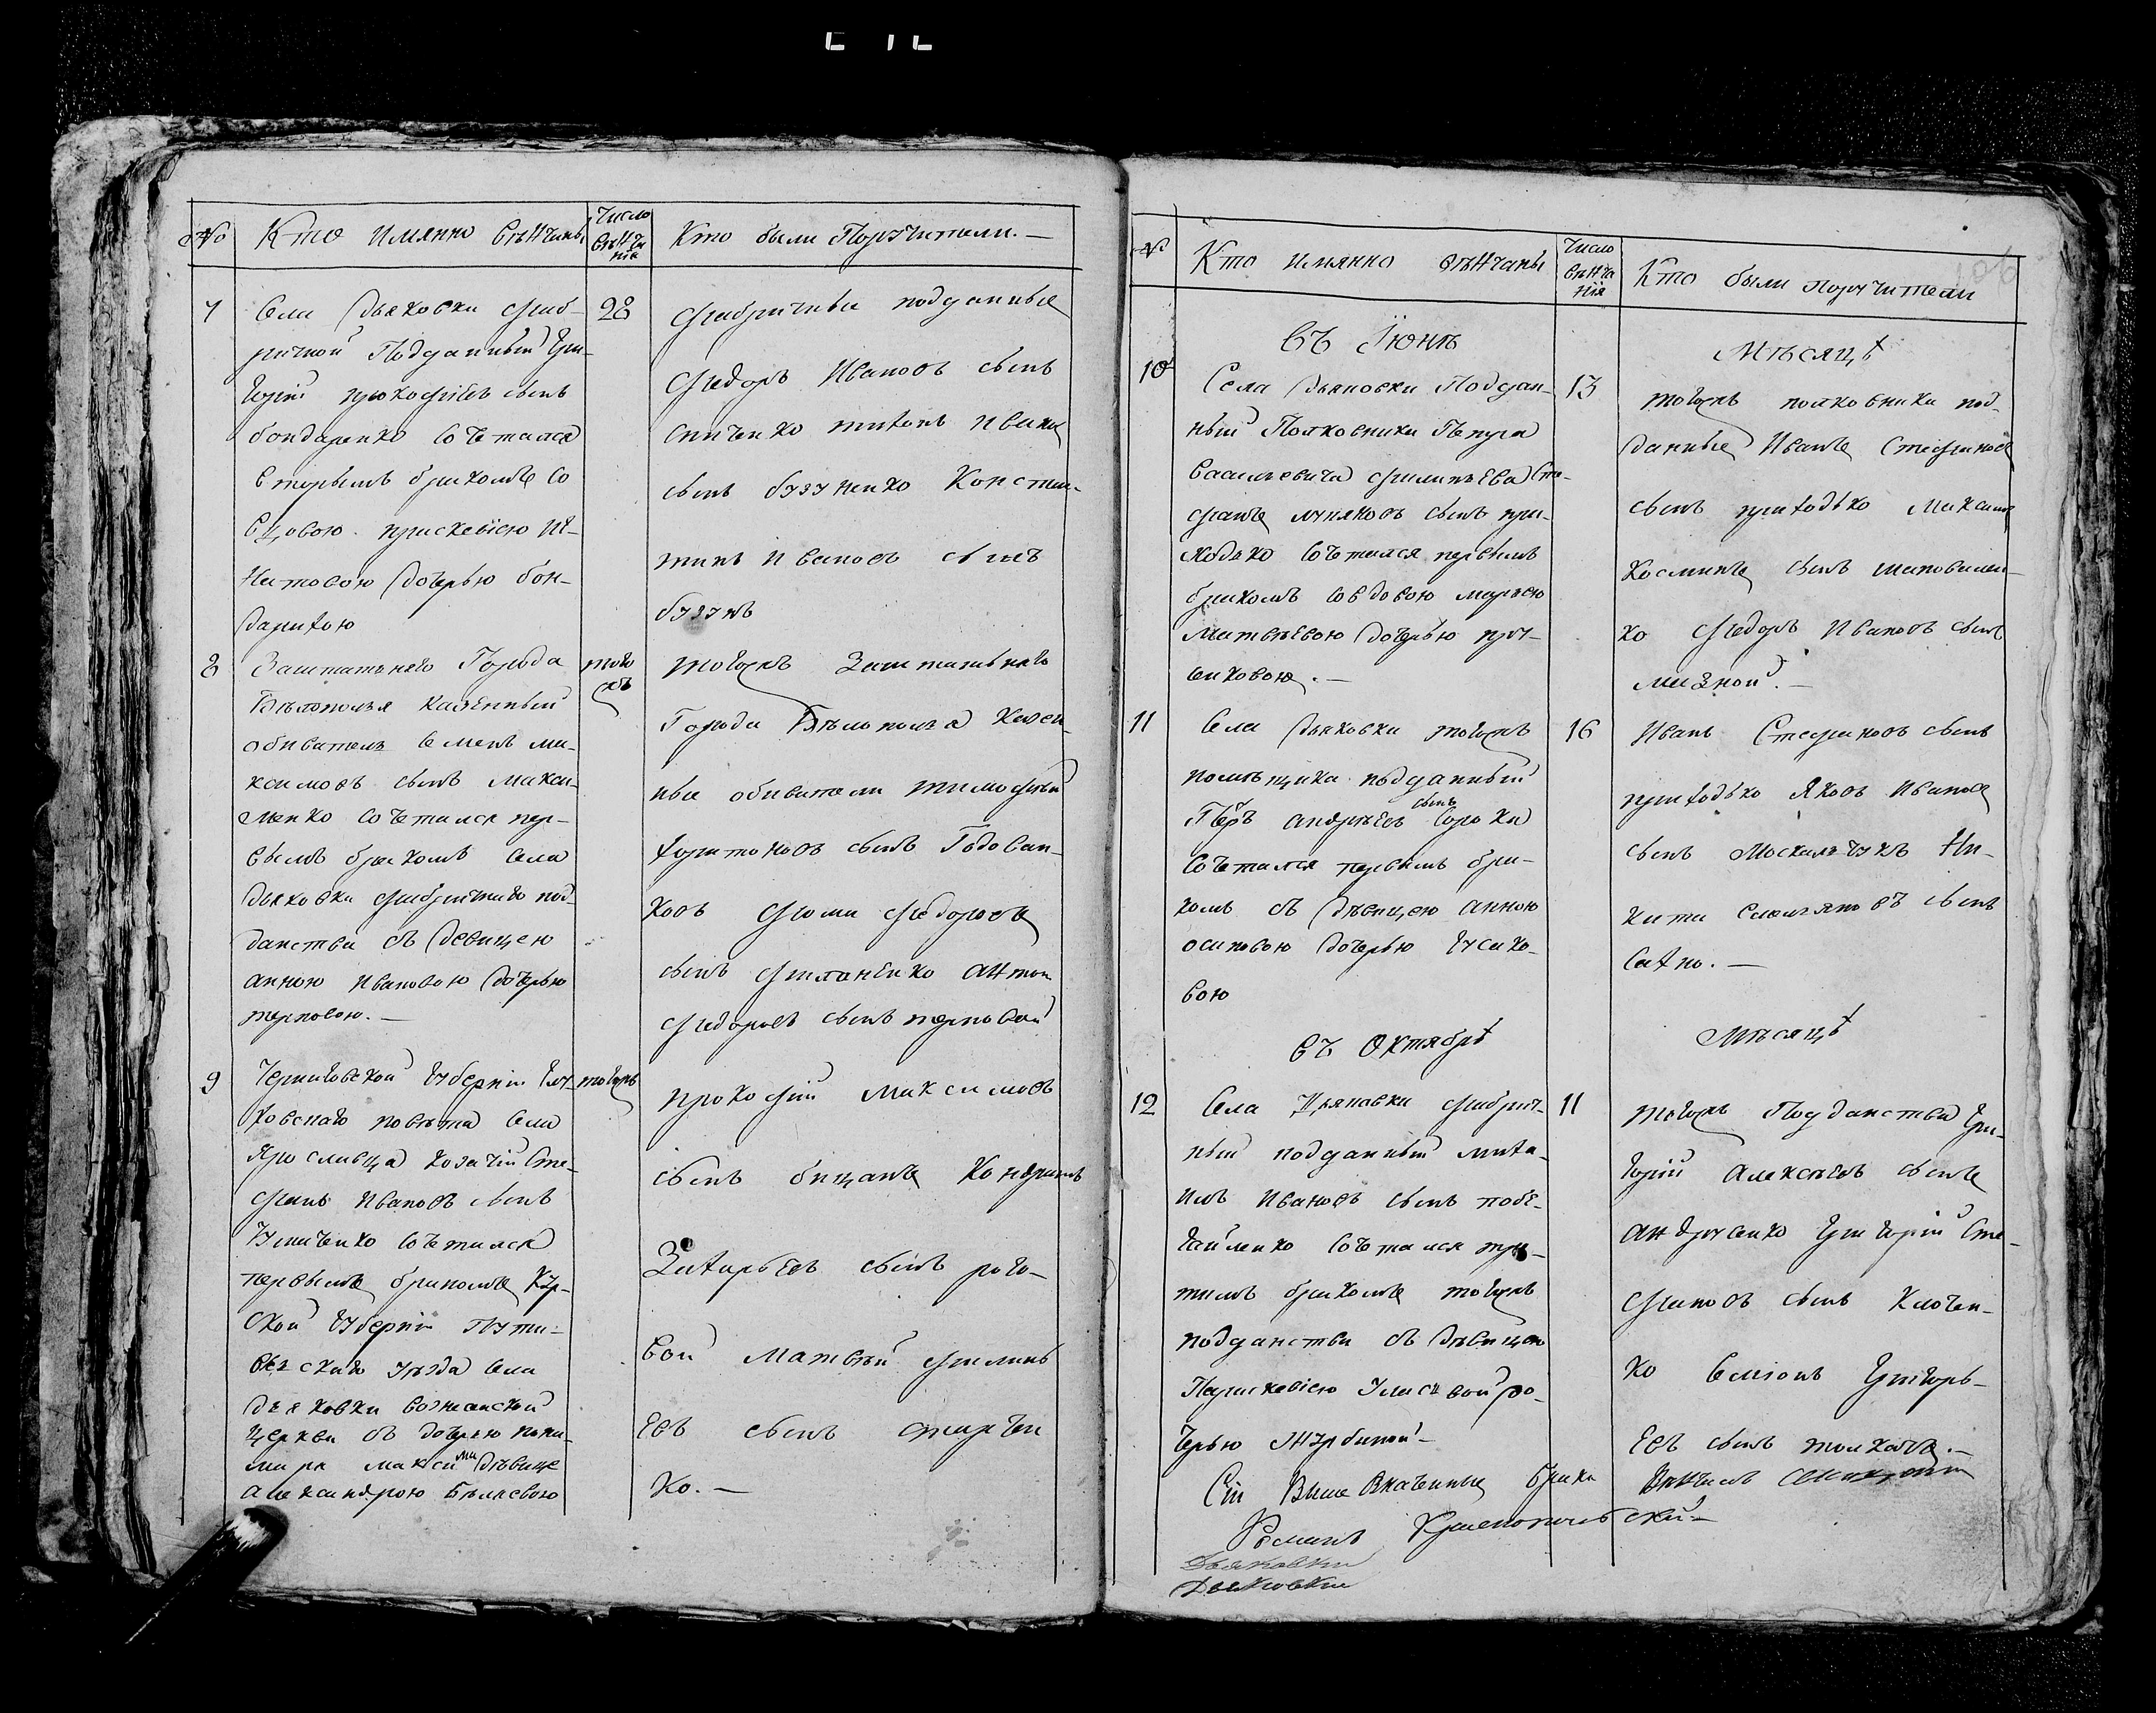 № Кто имянно вѣнчаны Число вѣнчанія Кто были Поручители. —
7 Села Дьяковки фаб- 28
ричной Подданный Гри-
горій прокофіевъ сынъ
бондаренко сочетался
вторымъ бракомъ со
вдовою прискевіею Иг-
натовою дочерью бон-
дарихою
фабричные подданные
федоръ Ивановъ сынъ
спиченко тихонъ Ивановъ
сынъ бузуненко Констан-
тинъ Ивановъ сынъ
бузунъ
8 Заштатнаго Города того жъ
Бѣлополья казенный
обиватель Семенъ ма-
ксимовъ сынъ макси-
менко сочетался пер-
вымъ бракомъ села
дьяковки фабричнаго под-
данства съ девицею
анною Ивановою дочерью
терновою. —
тогожъ Заштатнаго
Города Бѣлополья казен-
ные обиватели тимофей
харитоновъ сынъ Годован-
ковъ фома федоровъ
сынъ филоненко антонъ
федоровъ сынъ терновой
9 Черниговской губерніи Глу- тогожъ
ховскаго повѣта села
Ярославца козачій Сте-
фанъ Ивановъ сынъ
сочетался
первымъ бракомъ Кур-
ской губерніи Пути-
вльскаго уѣзда села
дьяковки вознесенской
церкви съ дочерью пона-
маря максима дѣвице
александрою Бѣляевою
прокофій максимовъ
сынъ бицанъ Кондратъ
Захарьевъ сынъ рого-
вой Матвѣй филипъ
евъ сынъ
ко. —
№ Кто имянно вѣнчаны Число вѣнчанія Кто были поручители
въ Іюнѣ Мѣсяцѣ
10 Села Дьяковки Поддан- 13
ный Полковника Петра
Васильевича филипьева Сте-
фанъ лукяновъ сынъ при-
ходько сочетался первымъ
бракомъ совдовою марьею
матвѣевою дочерью
. —
тогожъ полковника под-
данные Иванъ Стефановъ
сынъ приходько Максимъ
Косминъ сынъ шаповален-
ко федоръ Ивановъ сынъ
мизной. —
11 Села Дьяковки тогожъ 16
помѣщика подданный
Петръ андрѣевъ сынъ Сорока
сочетался первымъ бра-
комъ съ дѣвицею анною
осиповою дочерью гусако-
вою
Иванъ Стефановъ сынъ
приходько Яковъ Ивановъ
сынъ Москальчукъ Ни-
кита емельяновъ сынъ
Сахно. —
въ Октябрѣ Мѣсяцѣ
12 Села Дьяковки фабрич- 11
ный подданный миха-
илъ Ивановъ сынъ побе-
гайленко сочетался тре-
тимъ бракомъ тогожъ
подданства съ дѣвицею
Парискевіею до-
черью Журбиной —
тогожъ Подданства Гри-
горій алексѣевъ сынъ
андрусенко Григорій Сте-
фановъ сынъ Клочен-
ко Семіонъ Григорь-
евъ сынъ толкачъ. —
Сіи Выше браки Вѣнчалъ священникъ
Романъ Краснопольскій —
Дьяковки
Дьяковки